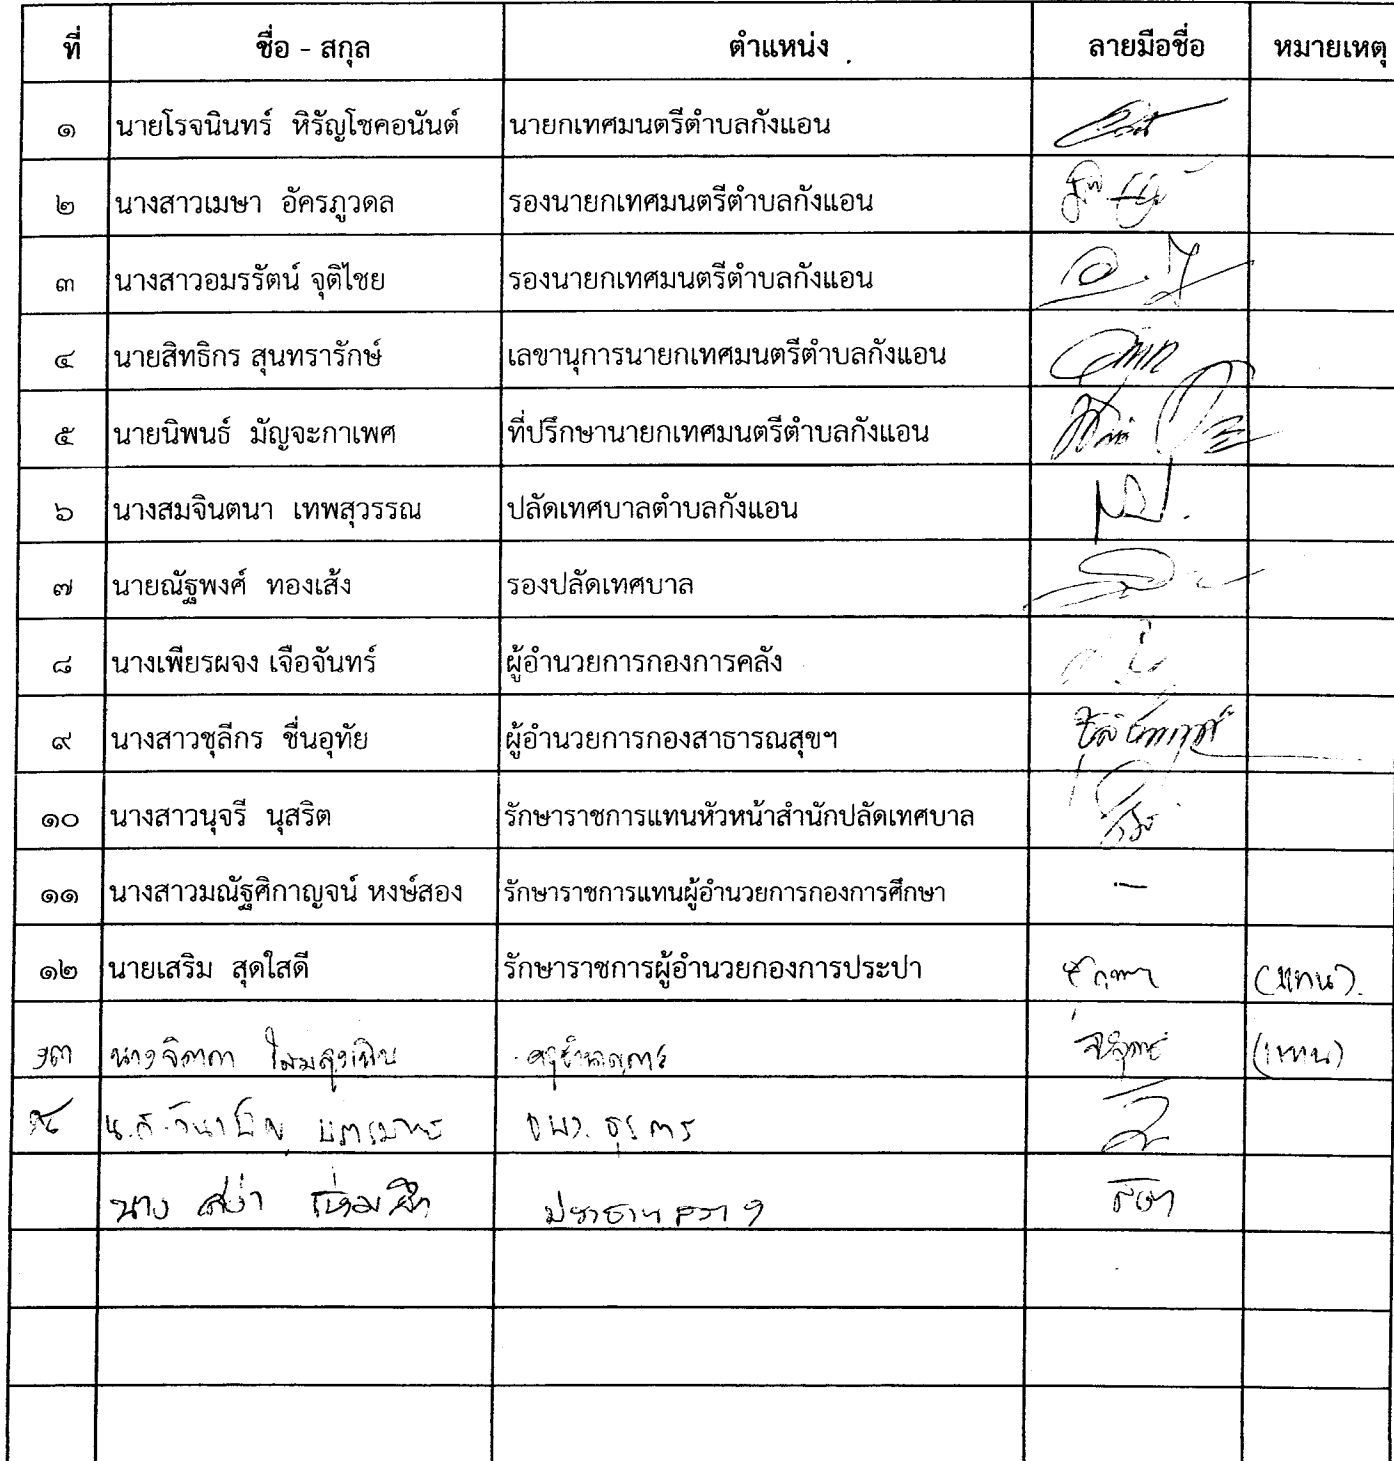 ที่ ชื่อ - สกุล ตำแหน่ง ลายมือชื่อ หมายเหตุ
๑ นายโรจนินทร์ หิรัญโชคอนันต์ นายกเทศมนตรีตำบลกังแอน
๒ นางสาวเมษา อัครภูวดล รองนายกเทศมนตรีตำบลกังแอน
๓ นางสาวอมรรัตน์ จุติไชย รองนายกเทศมนตรีตำบลกังแอน
๔ นายสิทธิกร สุนทรารักษ์ เลขานุการนายกเทศมนตรีตำบลกังแอน
๕ นายนิพนธ์ มัญจะกาเพศ ที่ปรึกษานายกเทศมนตรีตำบลกังแอน
๖ นางสมจินตนา เทพสุวรรณ ปลัดเทศบาลตำบลกังแอน
๗ นายณัฐพงศ์ ทองเส้ง รองปลัดเทศบาล
๘ นางเพียรผจง เจือจันทร์ ผู้อำนวยการกองการคลัง
๙ นางสาวชุลีกร ชื่นอุทัย ผู้อำนวยการกองสาธารณสุขฯ
๑๐ นางสาวนุจรี นุสริต รักษาราชการแทนหัวหน้าสำนักปลัดเทศบาล
๑๑ นางสาวมณัฐศิกาญจน์ หงษ์สอง รักษาราชการแทนผู้อำนวยการกองการศึกษา –
๑๒ นายเสริม สุดใสดี รักษาราชการผู้อำนวยกองการประปา (แทน)
๑๓ (แทน)
๑๔ น.ส. จพง. ธุรการ
นาง สง่า ประธานสภาฯ สง่า